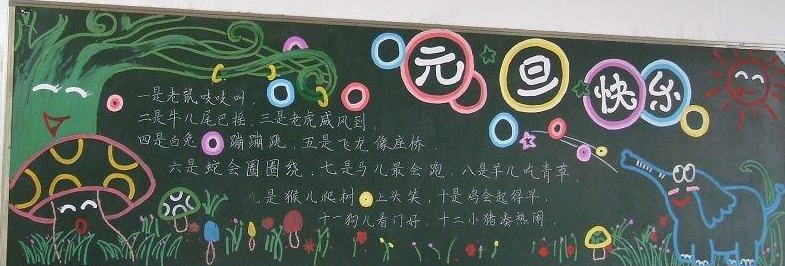 元旦快乐
一是老鼠吱吱叫,
二是牛儿尾巴摇,三是老虎威风到,
四是白兔蹦蹦跳,五是飞龙像座桥.
六是蛇会圈圈绕,七是马儿最会跑,八是羊儿吃青草,
九是猴儿爬树上头笑,十是鸡会起得早,
十一狗儿看门好,十二小猪凑热闹.